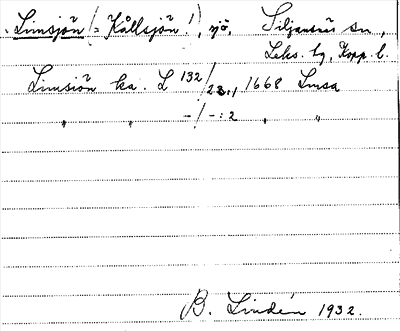 Limsjön (= Kållsjön!), sjö, Siljansnäs sn,
Leks. tg, Kopp. l.
Limsiön ka. L 132/23:1, 1668 Lmsa
" " -/-:2 " "
B. Lindén 1932.